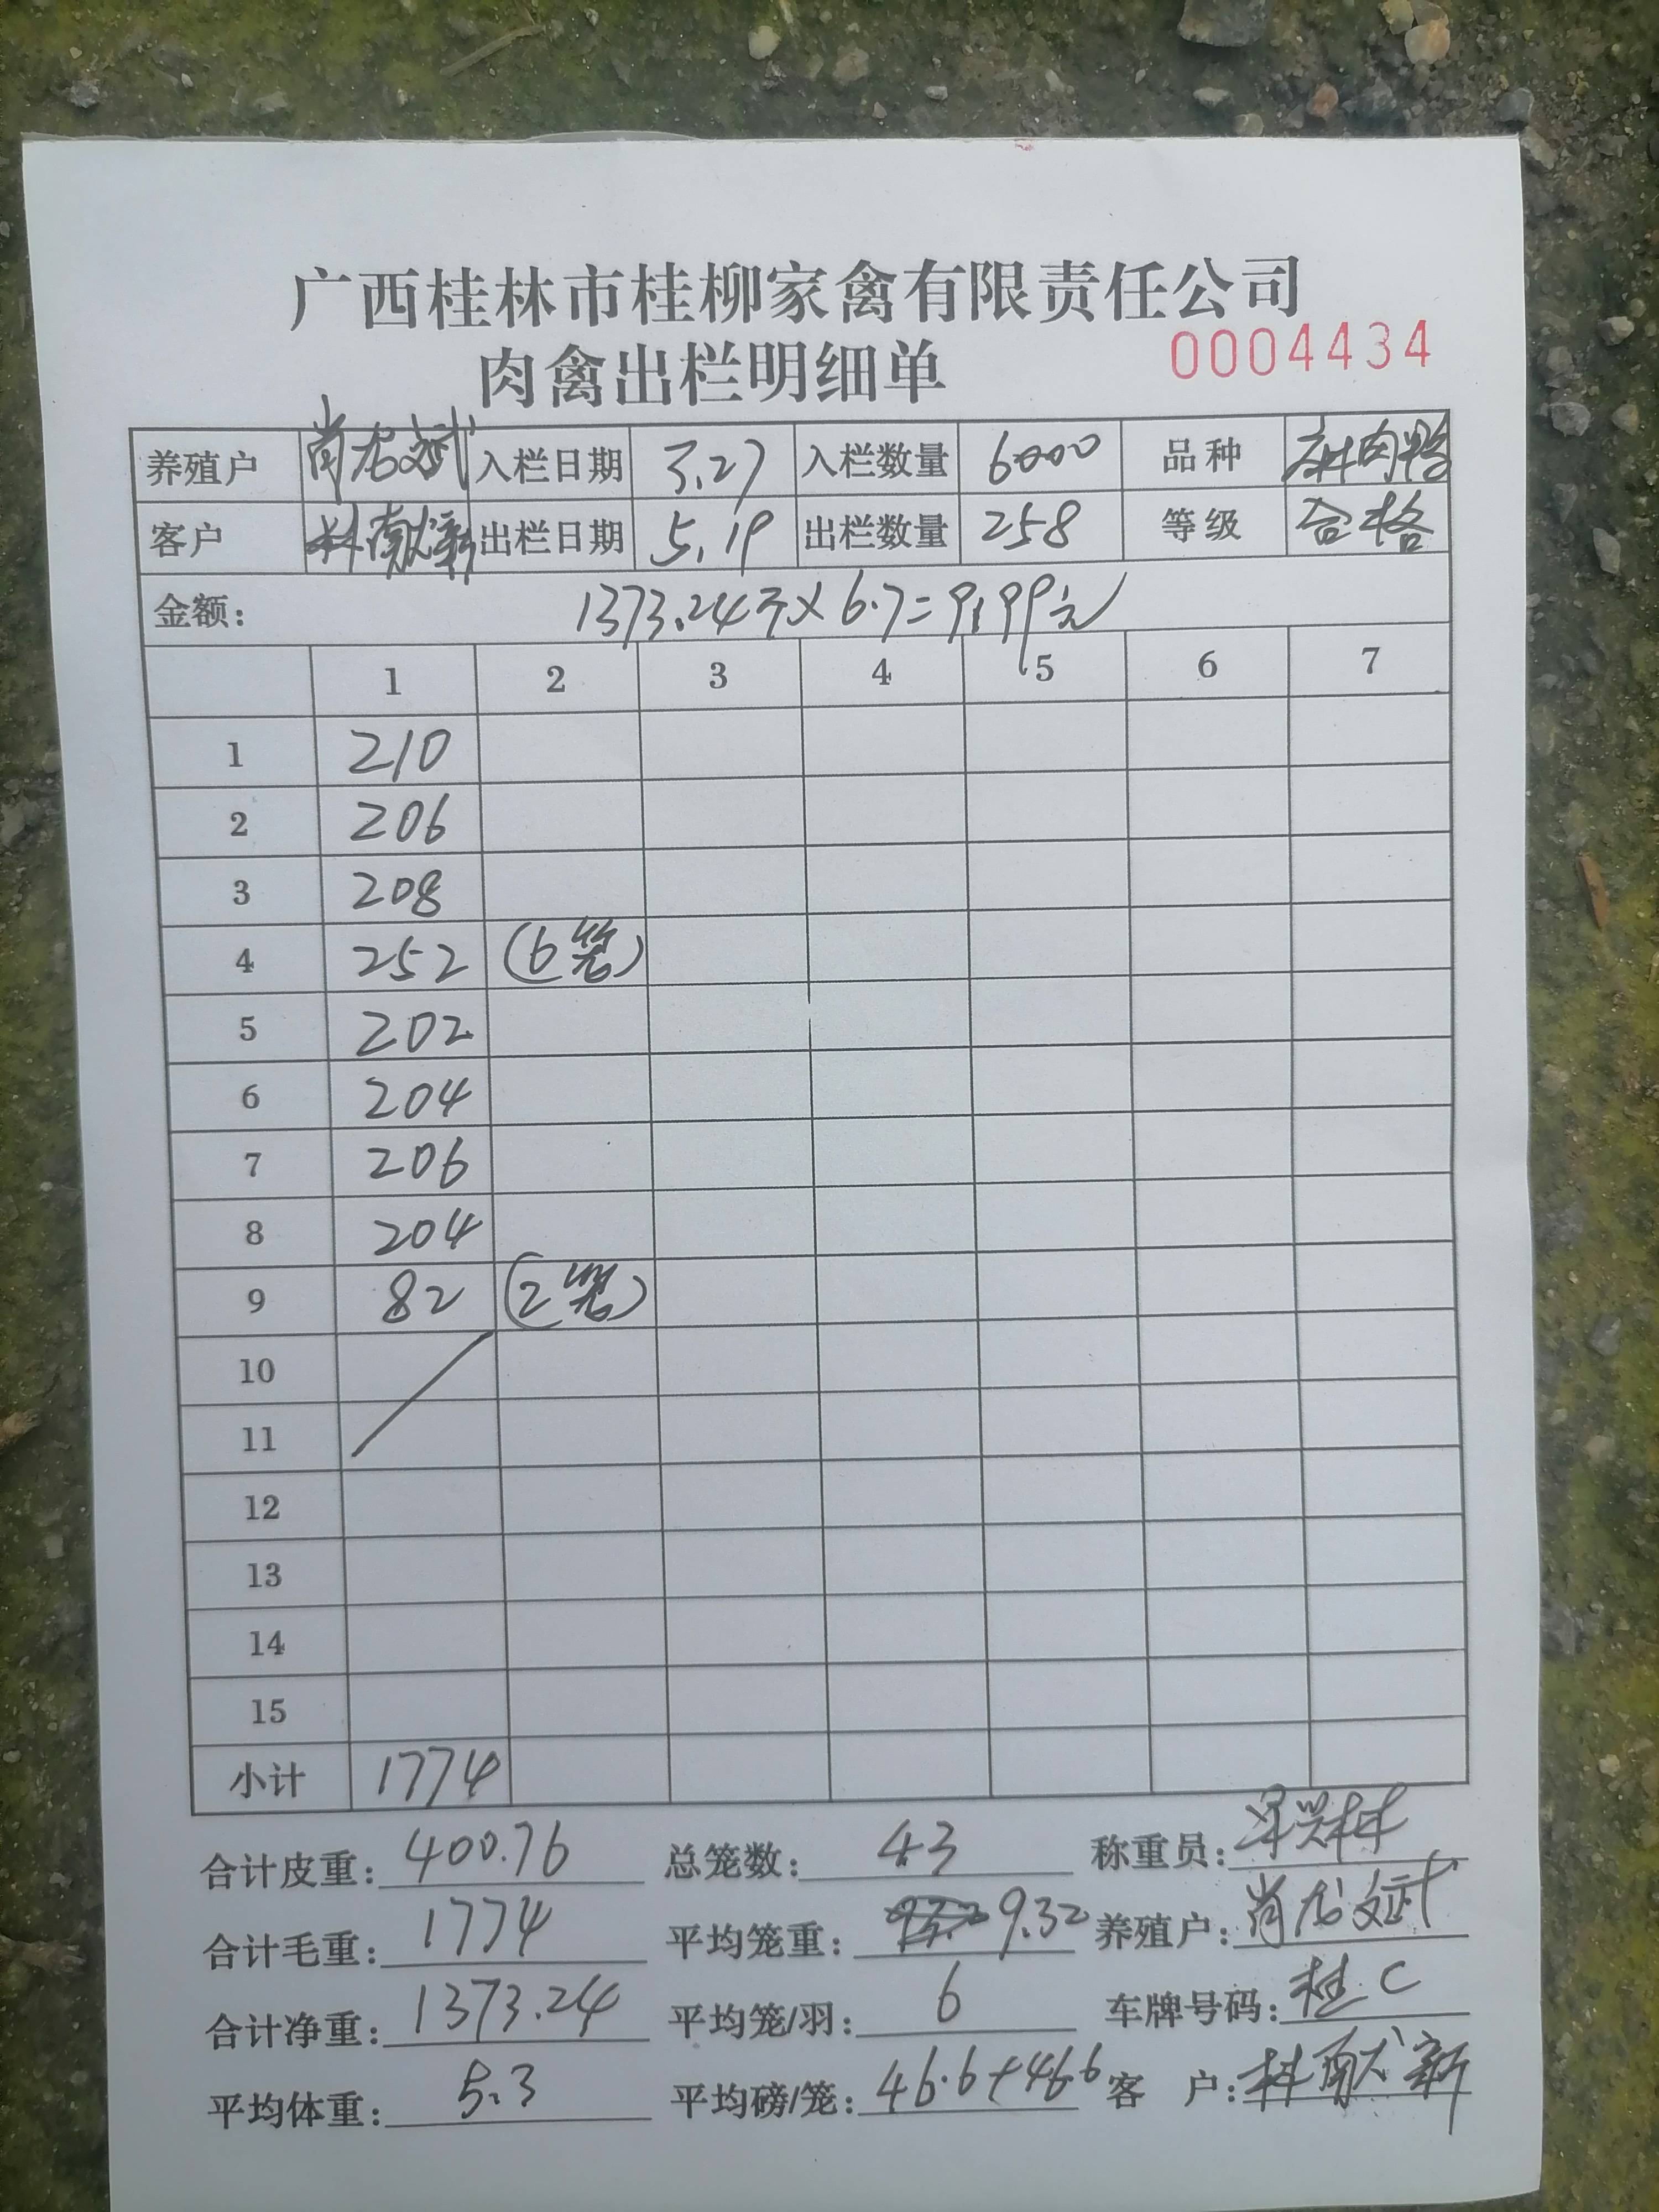 广西桂林市桂柳家禽有限责任公司
肉禽出栏明细单 0004434
养殖户 肖龙斌 入栏日期 3.27 入栏数量 6000 品种 麻肉鸭
客户 林献新 出栏日期 5.19 出栏数量 258 等级 合格
金额: 1373.24斤×6.7=9199元
1 2 3 4 5 6 7
1 210
2 206
3 208
4 252 (6笼)
5 202
6 204
7 206
8 204
9 82 (2笼)
10
11
12
13
14
15
小计 1774
合计皮重: 400.76 总笼数: 43 称重员:
合计毛重: 1774 平均笼重: 9.32 养殖户: 肖龙斌
合计净重: 1373.24 平均笼/羽: 6 车牌号码: 桂C
平均体重: 5.3 平均磅/笼: 46.6+46.6 客户: 林献新